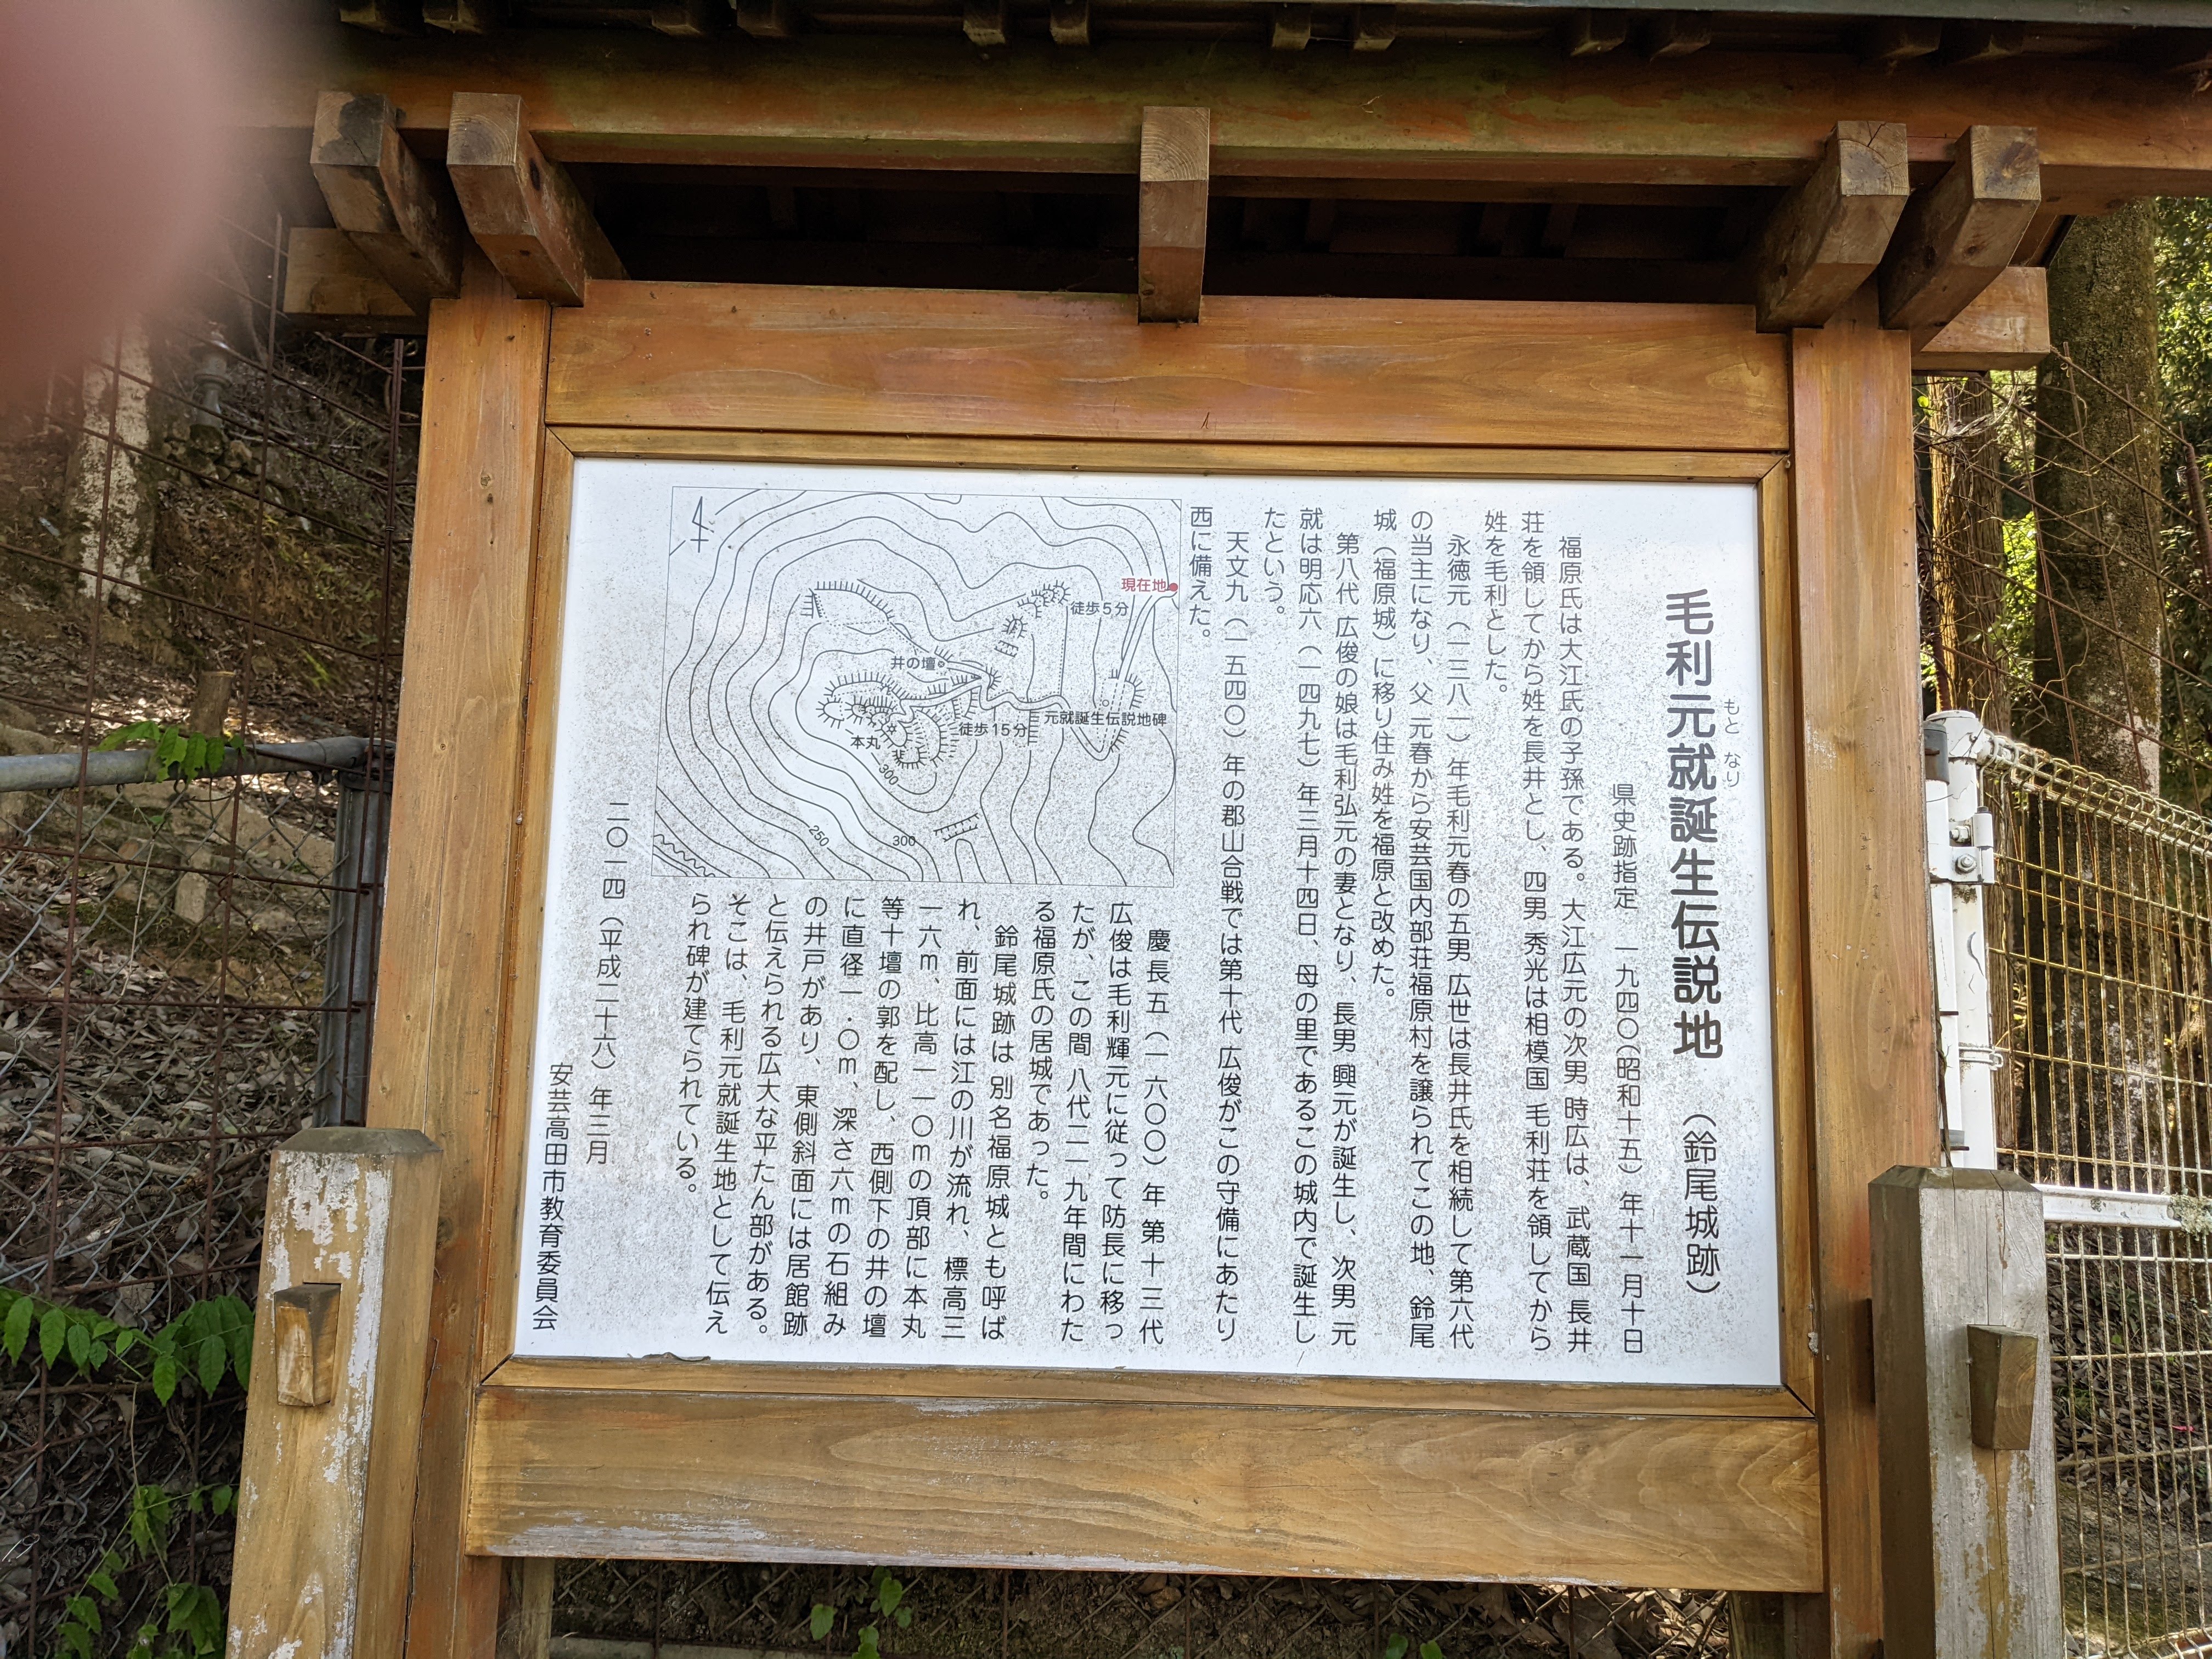 毛利元就誕生伝説地 (鈴尾城跡)
もと なり
県史跡指定 一九四〇(昭和十五)年十一月十日
福原氏は大江氏の子孫である。大江広元の次男 時広は、武蔵国 長井
荘を領してから姓を長井とし、四男 秀光は相模国 毛利荘を領してから
姓を毛利とした。
永徳元(一三八一)年毛利元春の五男 広世は長井氏を相続して第六代
の当主になり、父 元春から安芸国内部荘福原村を譲られてこの地、鈴尾
城(福原城)に移り住み姓を福原と改めた。
第八代 広俊の娘は毛利弘元の妻となり、長男 興元が誕生し、次男 元
就は明応六(一四九七)年三月十四日、母の里であるこの城内で誕生し
たという。
天文九(一五四〇)年の郡山合戦では第十代 広俊がこの守備にあたり
西に備えた。
慶長五(一六〇〇)年 第十三代
広俊は毛利輝元に従って防長に移っ
たが、この間 八代二一九年間にわた
る福原氏の居城であった。
鈴尾城跡は 別名福原城とも呼ば
れ、前面には江の川が流れ、標高三
一六m、比高一一〇mの頂部に本丸
等十壇の郭を配し、西側下の井の壇
に直径一・〇m、深さ六mの石組み
の井戸があり、東側斜面には居館跡
と伝えられる広大な平たん部がある。
そこは、毛利元就誕生地として伝え
られ碑が建てられている。
二〇一四(平成二十六)年三月
安芸高田市教育委員会
現在地
徒歩5分
井の壇
元就誕生伝説地碑
徒歩15分
本丸
300
250
300